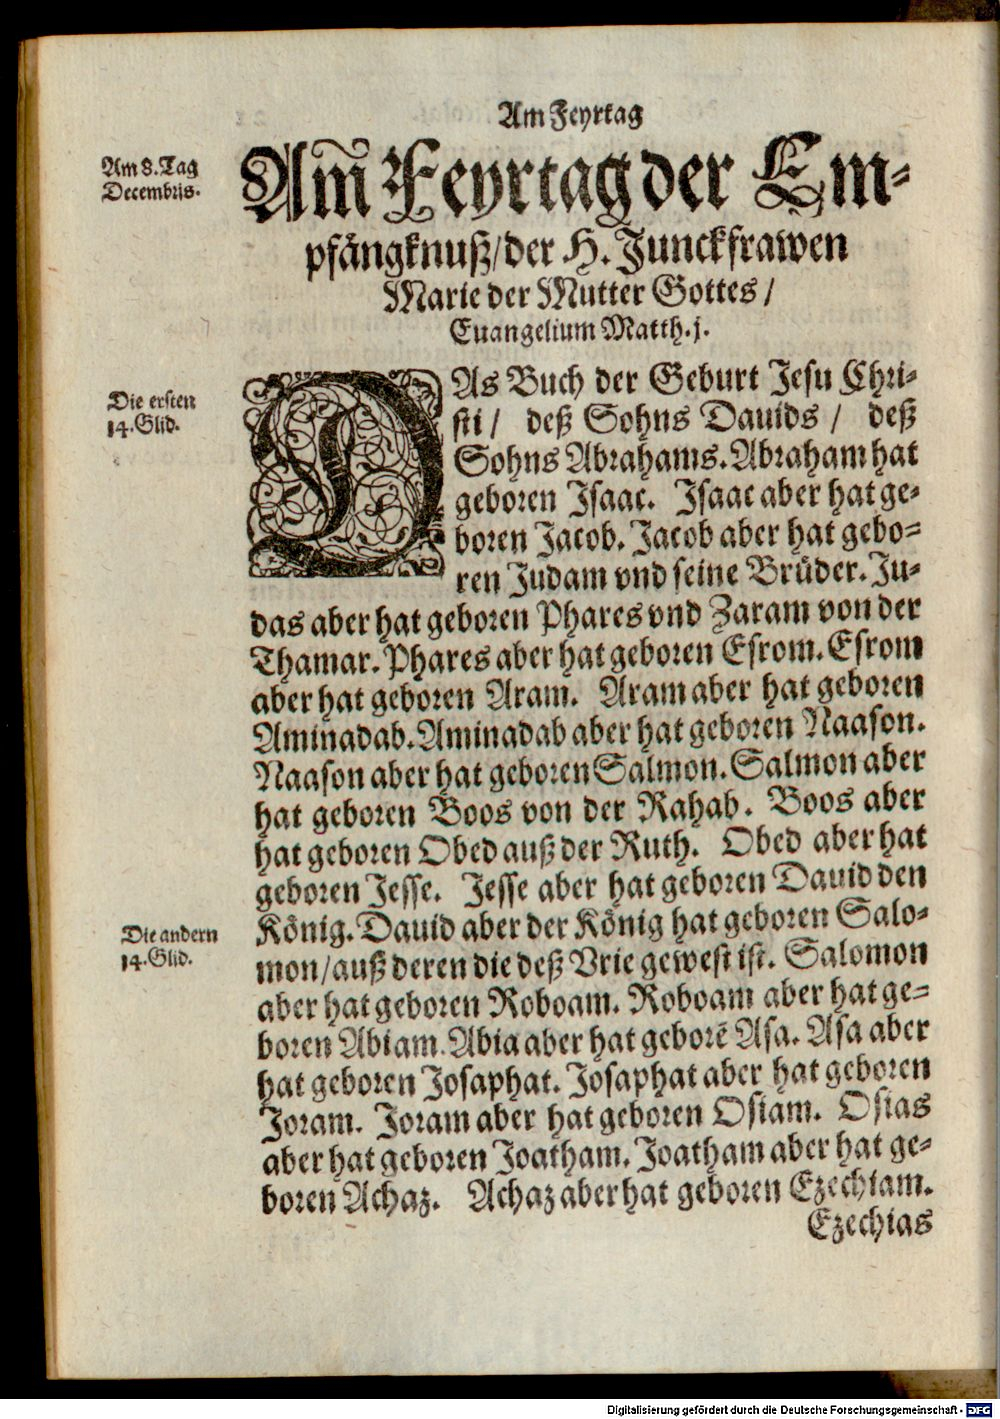 Am Feyrtag
Am 8. Tag
Decembris.
Am̃ Feyrtag der Em-
pfängknuß/ der H. Junckfrawen
Marie der Mutter Gottes /
Euangelium Matth. j.
Die ersten
14. Glid.
DAs Buch der Geburt Jesu Chri-
sti / deß Sohns Dauids / deß
Sohns Abrahams. Abraham hat
geboren Isaac. Isaac aber hat ge-
boren Jacob. Jacob aber hat gebo-
ren Judam vnd seine Brüder. Ju-
das aber hat geboren Phares vnd Zaram von der
Thamar. Phares aber hat geboren Esrom. Esrom
aber hat geboren Aram. Aram aber hat geboren
Aminadab. Aminadab aber hat geboren Naason.
Naason aber hat geboren Salmon. Salmon aber
hat geboren Boos von der Rahab. Boos aber
hat geboren Obed auß der Ruth. Obed aber hat
geboren Jesse. Jesse aber hat geboren Dauid den
König. Dauid aber der König hat geboren Salo-
Die andern
14. Glid.
mon/ auß deren die deß Vrie gewest ist. Salomon
aber hat geboren Roboam. Roboam aber hat ge-
boren Abiam. Abia aber hat geborē Asa. Asa aber
hat geboren Josaphat. Josaphat aber hat geboren
Joram. Joram aber hat geboren Osiam. Osias
aber hat geboren Joatham. Joatham aber hat ge-
boren Achaz. Achaz aber hat geboren Ezechiam.
Ezechias
Digitalisierung gefördert durch die Deutsche Forschungsgemeinschaft - DFG